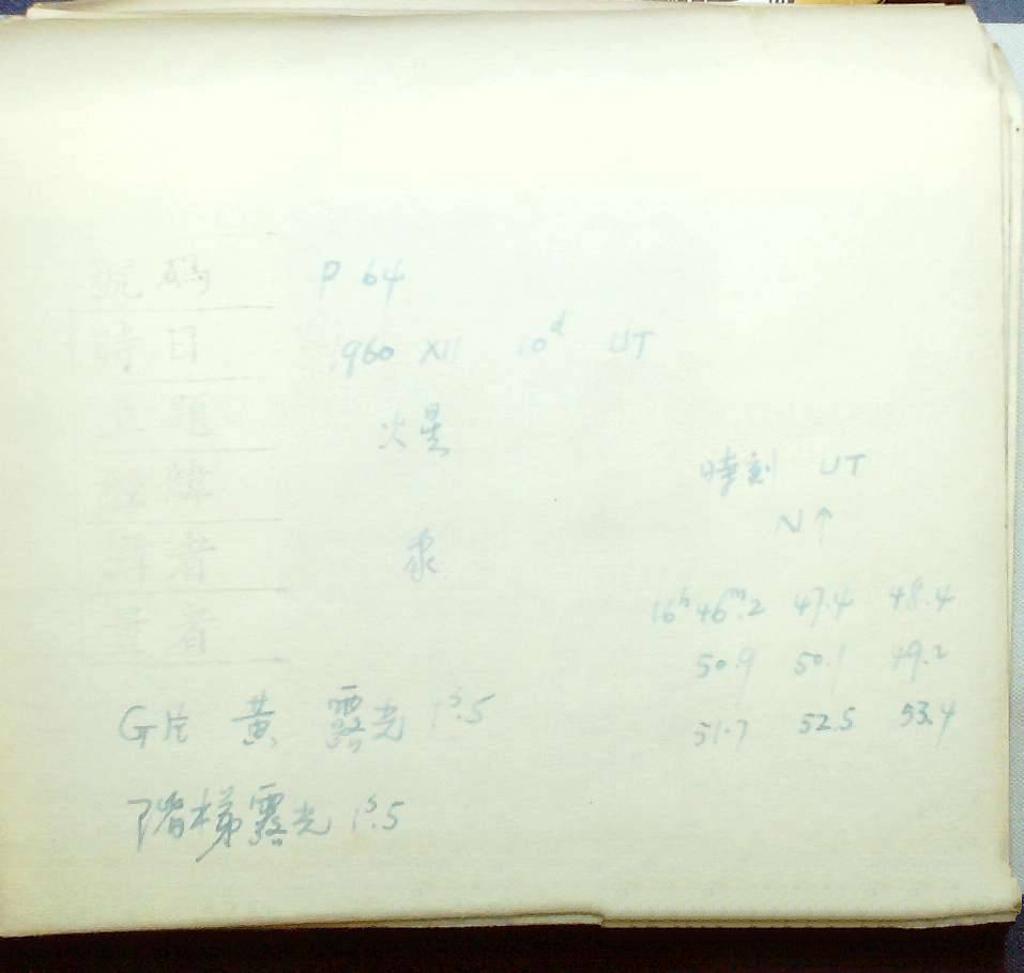 號碼 P 64
時日 1960 XII 10d UT
主題 火星
經緯
者
者
時刻 UT
N↑
16h46m.2 47.4 48.4
50.9 50.1 49.2
51.7 52.5 53.4
G片 黃 露光 1s.5
階梯露光 1s.5